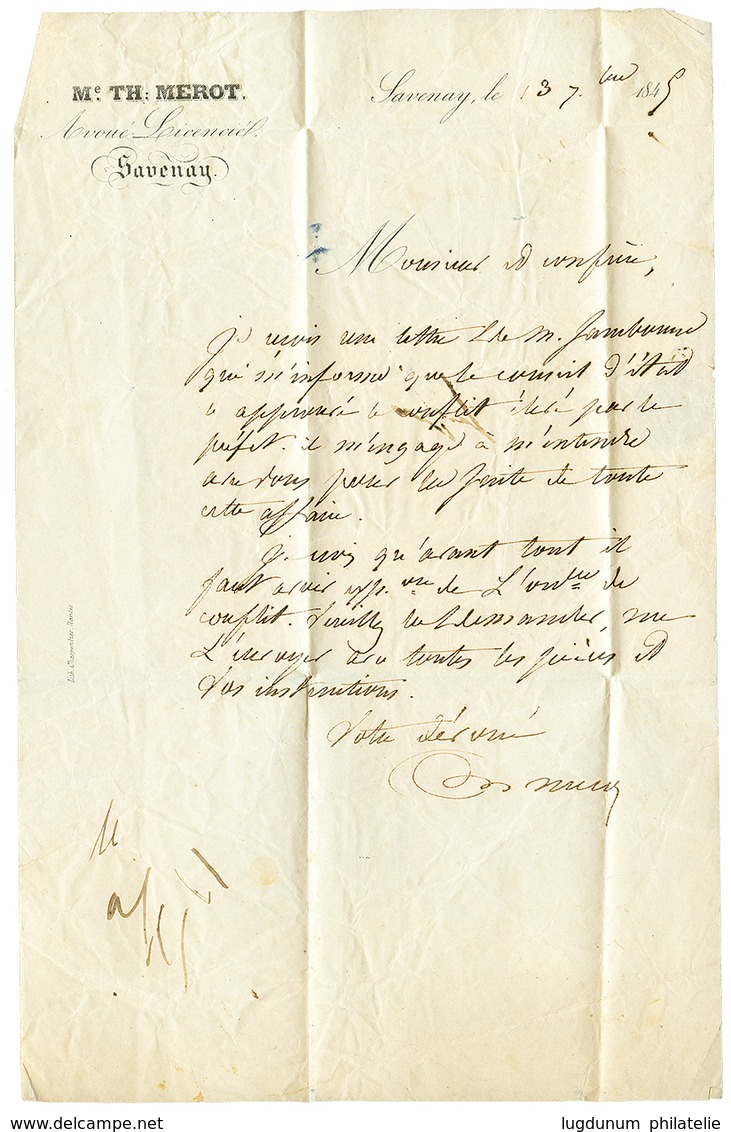 Me. TH: MEROT.
Avoué Licencié,
Savenay.
Savenay, le 13 7.bre 1845
Monsieur et confrère,
Je reçois une lettre de M. Jambonne
qui m'informe que le conseil d'état
a approuvé le conflit élevé par le
préfet. il m'engage à m'entendre
avec vous pour la suite de toute
cette affaire.
Je crois qu'avant tout il
faut avoir exp.on de L'ordce de
conflit. Veuillez la demander, me
L'envoyer avec toutes les pièces et
vos instructions.
Votre dévoué
Merot
Lith. Charpentier Nantes
lugdunum philatelie